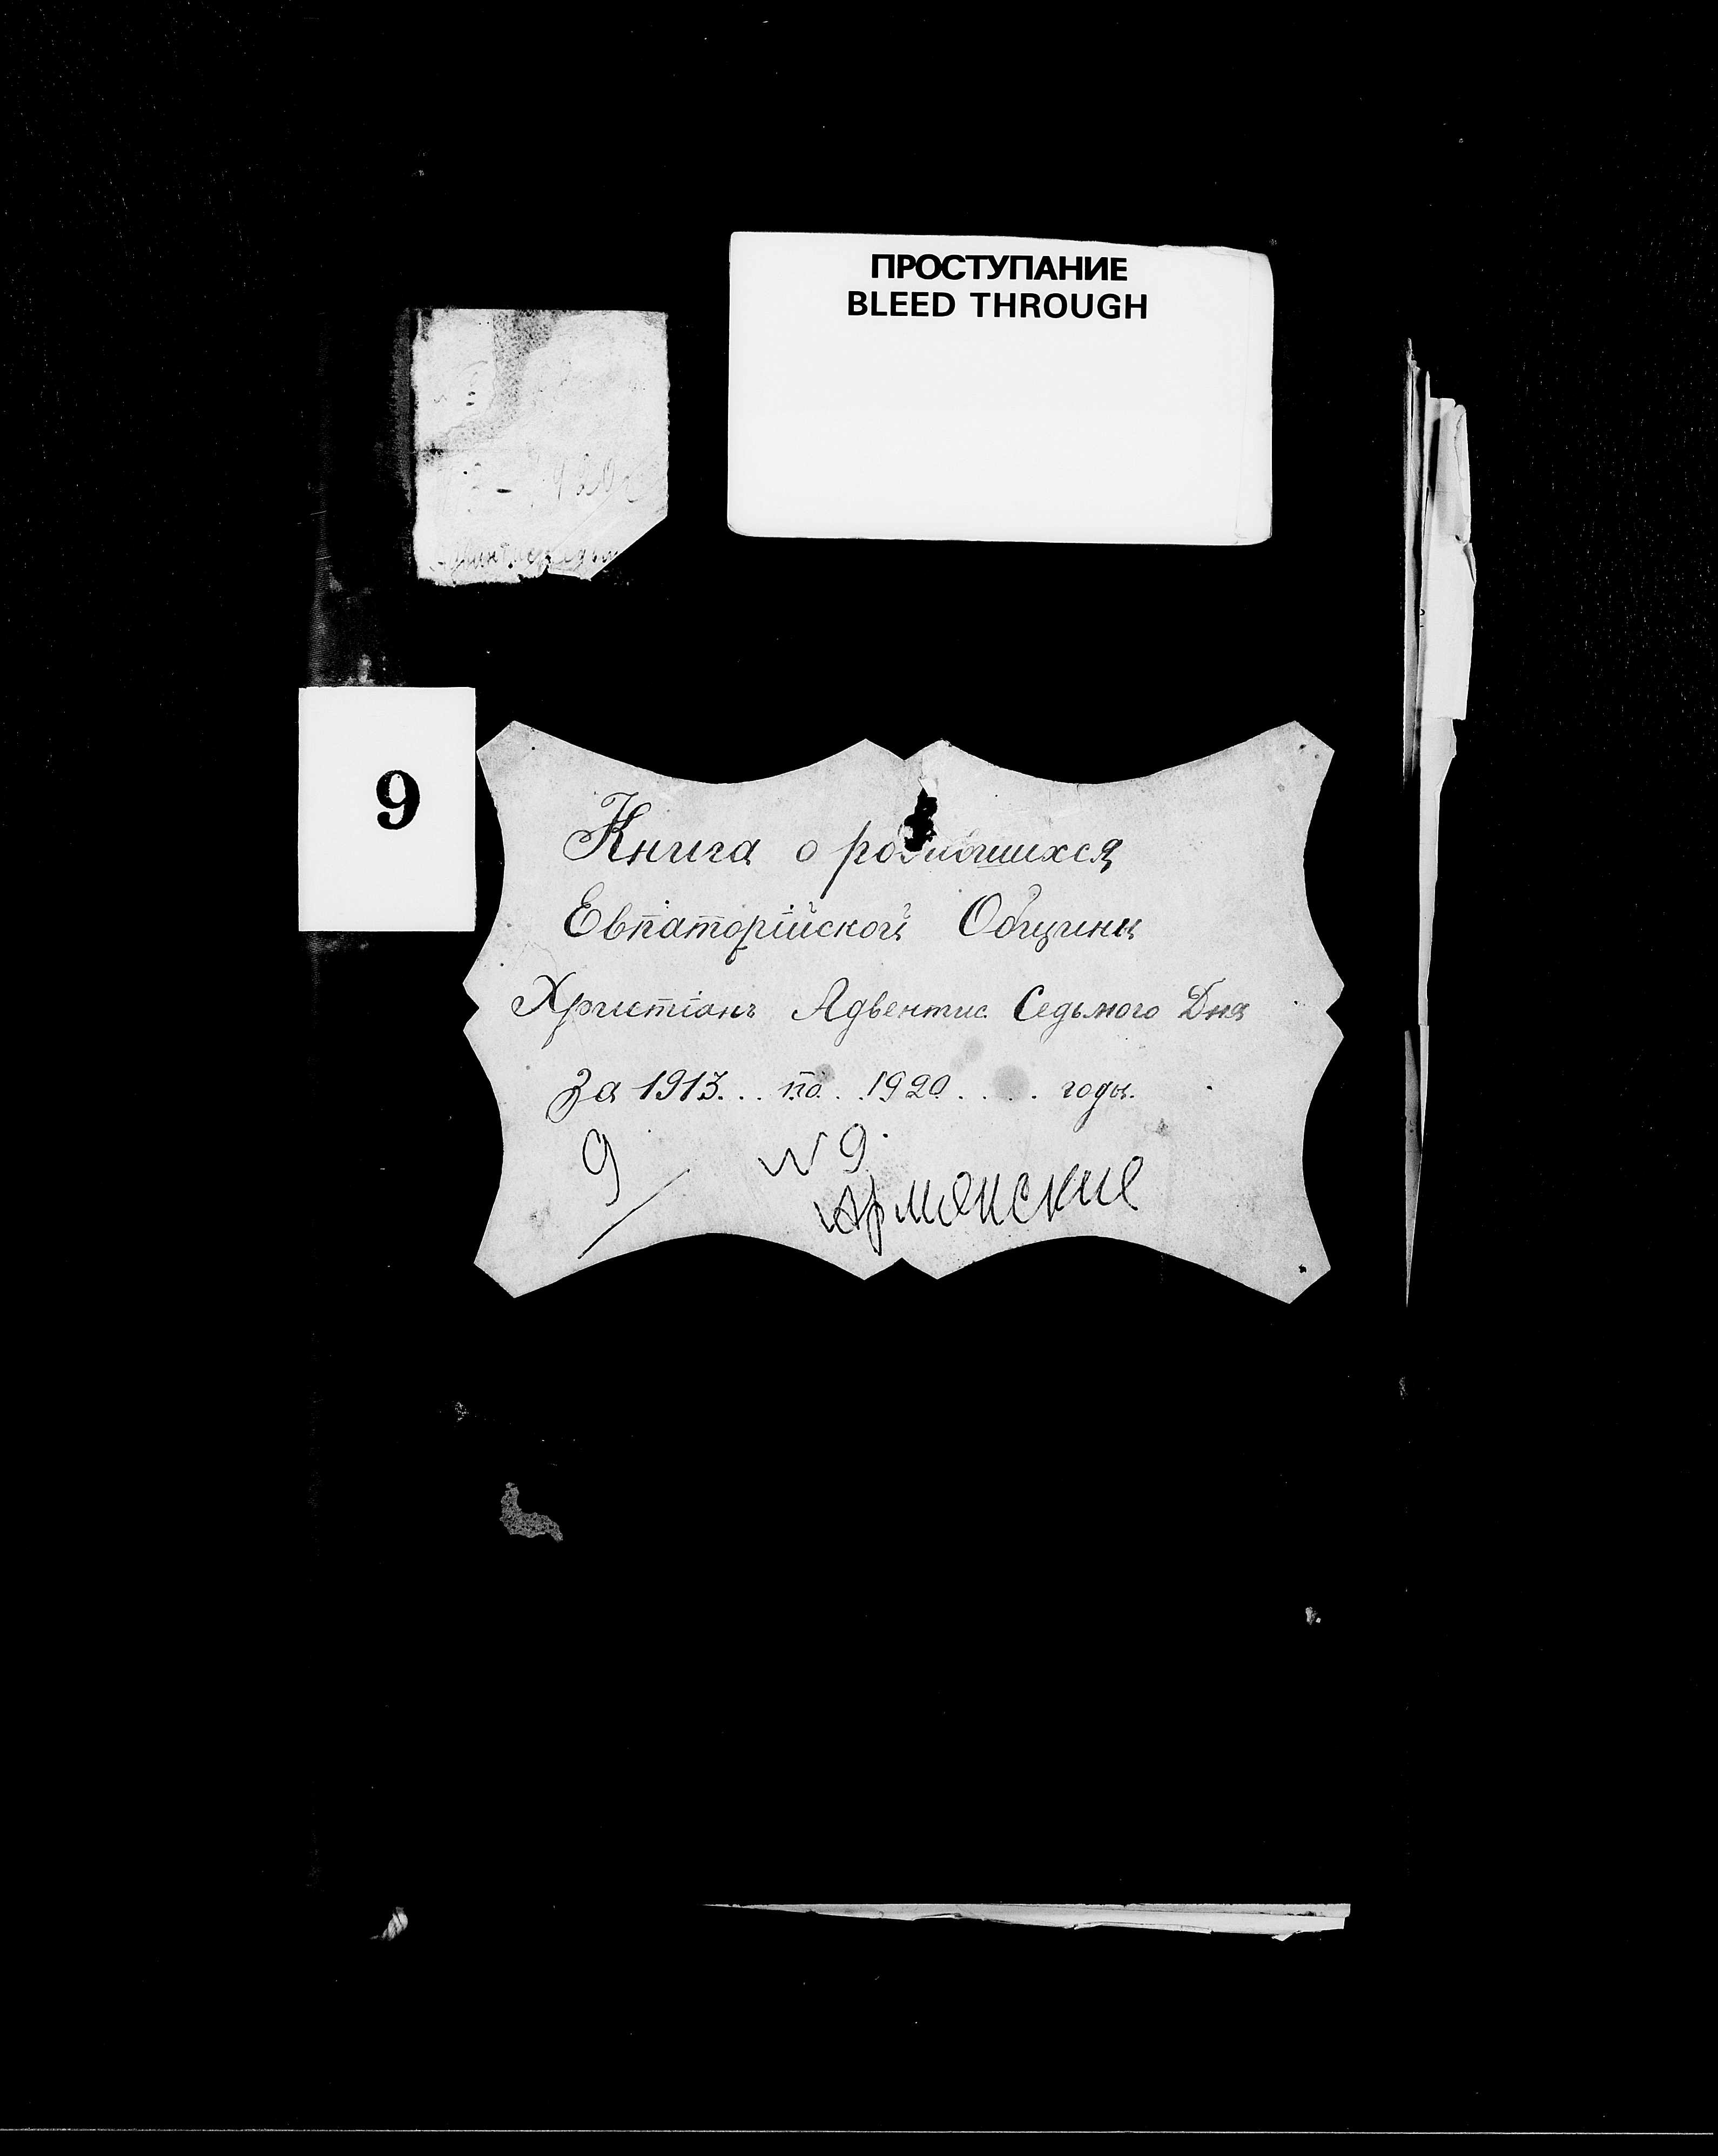 ПРОСТУПАНИЕ
BLEED THROUGH
9
Книга о родившихся
Евпаторійской Общины
Христіанъ Адвентис. Седьмого Дня
За 1913... по..1920..... годы.
9 № 9.
Армянские